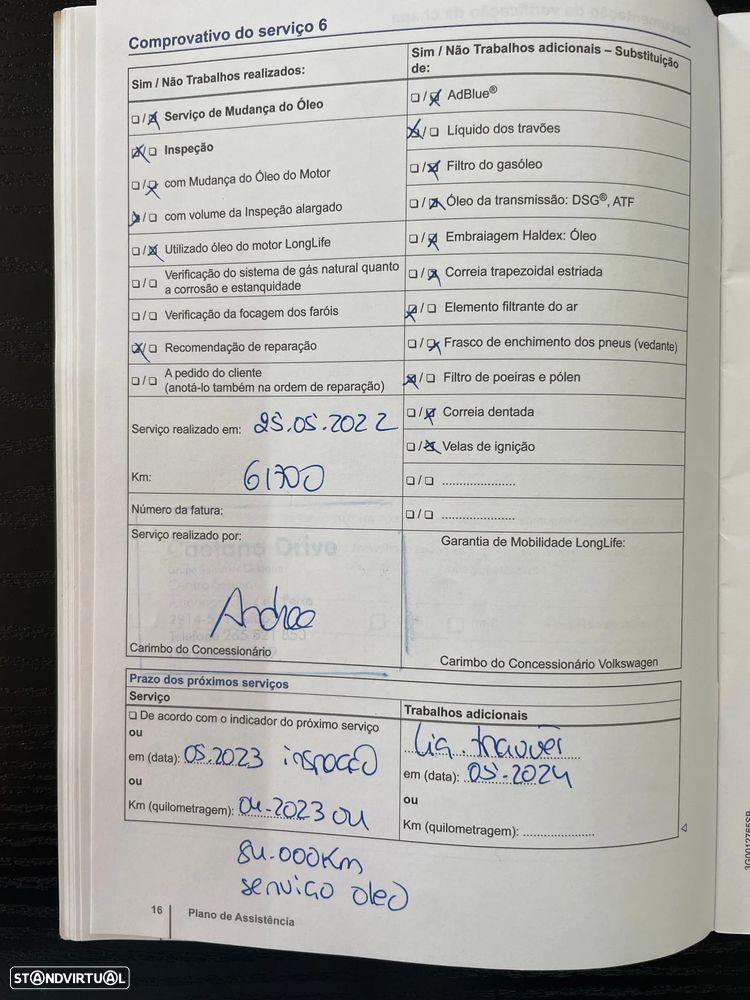 Comprovativo do serviço 6
Sim / Não Trabalhos realizados:
❏ / ❏ Serviço de Mudança do Óleo
❏ / ❏ Inspeção
❏ / ❏ com Mudança do Óleo do Motor
❏ / ❏ com volume da Inspeção alargado
❏ / ❏ Utilizado óleo do motor LongLife
❏ / ❏ Verificação do sistema de gás natural quanto
a corrosão e estanquidade
❏ / ❏ Verificação da focagem dos faróis
❏ / ❏ Recomendação de reparação
❏ / ❏ A pedido do cliente
(anotá-lo também na ordem de reparação)
Serviço realizado em: 25.05.2022
Km: 61700
Número da fatura:
Serviço realizado por:
Caetano Drive
Andrea
Telefone 265 521 850
Carimbo do Concessionário
Sim / Não Trabalhos adicionais – Substituição
de:
❏ / ❏ AdBlue®
❏ / ❏ Líquido dos travões
❏ / ❏ Filtro do gasóleo
❏ / ❏ Óleo da transmissão: DSG®, ATF
❏ / ❏ Embraiagem Haldex: Óleo
❏ / ❏ Correia trapezoidal estriada
❏ / ❏ Elemento filtrante do ar
❏ / ❏ Frasco de enchimento dos pneus (vedante)
❏ / ❏ Filtro de poeiras e pólen
❏ / ❏ Correia dentada
❏ / ❏ Velas de ignição
❏ / ❏ .....................
❏ / ❏ .....................
Garantia de Mobilidade LongLife:
Carimbo do Concessionário Volkswagen
Prazo dos próximos serviços
Serviço
❏ De acordo com o indicador do próximo serviço
ou
em (data): 05.2023 inspeção
ou
Km (quilometragem): 04-2023 ou
84.000Km
serviço oleo
Trabalhos adicionais
Liq.
em (data): 05-2024
ou
Km (quilometragem): ....................
16
Plano de Assistência
3G0012765SP
STANDVIRTUAL